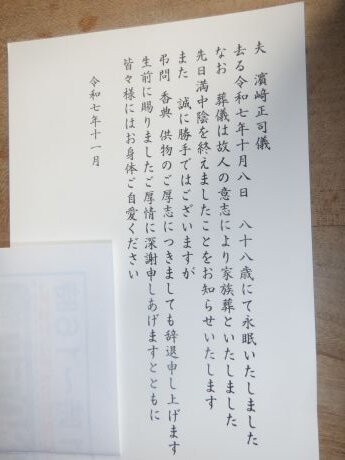 夫 濵﨑正司儀
去る令和七年十月八日 八十八歳にて永眠いたしました
なお 葬儀は故人の意志により家族葬といたしました
先日満中陰を終えましたことをお知らせいたします
また 誠に勝手ではございますが
弔問 香典 供物のご厚志につきましても辞退申し上げます
生前に賜りましたご厚情に深謝申しあげますとともに
皆々様にはお身体ご自愛ください
令和七年十一月